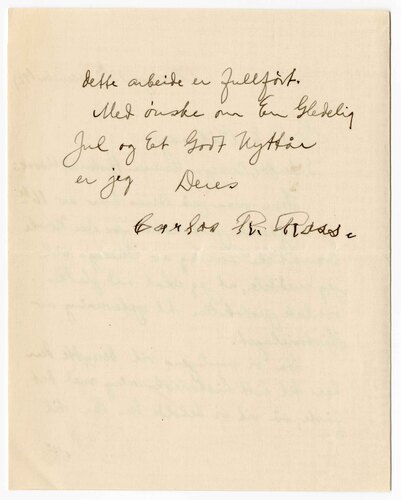 dette arbeide er fullført.
Med ønske om En Gledelig
Jul og Et Godt Nyttår
er jeg Deres
Carlos R. Ross.